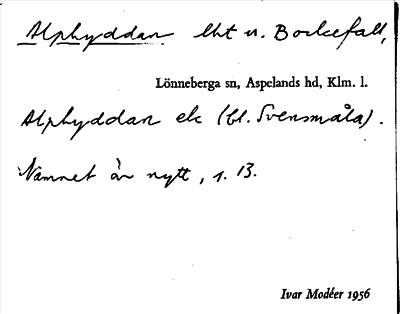 Alphyddan lht u. Borkefall,
Lönneberga sn, Aspelands hd, Klm. l.
Alphyddan ek (bl. Svensmåla).
Namnet är nytt, s. 13.
Ivar Modéer 1956